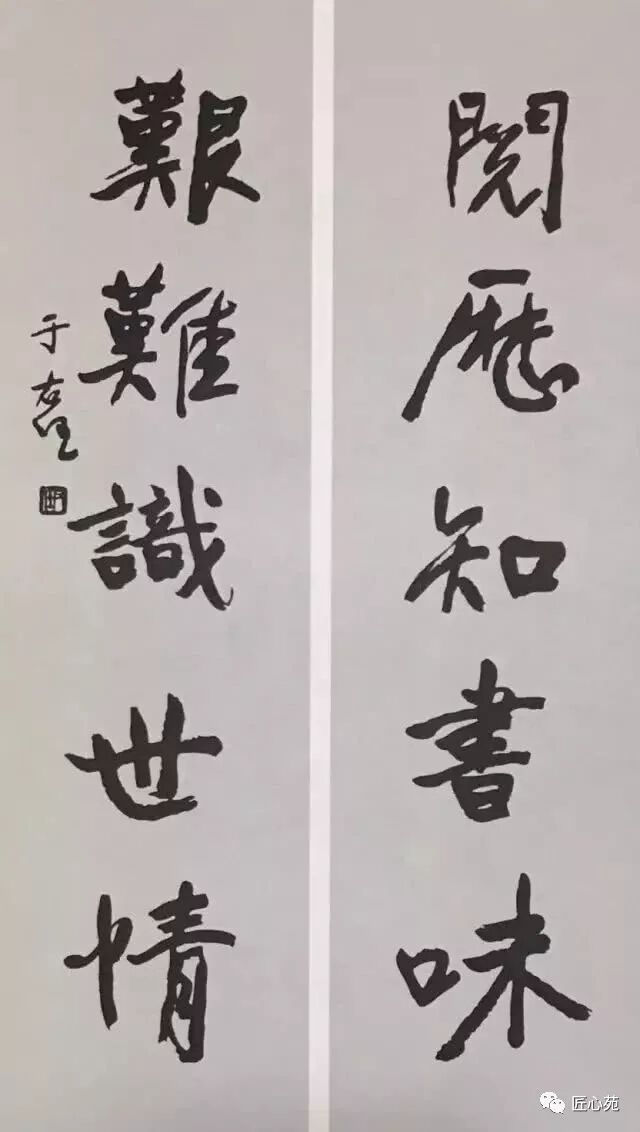 閱歷知書味
艱難識世情
于右任
匠心苑